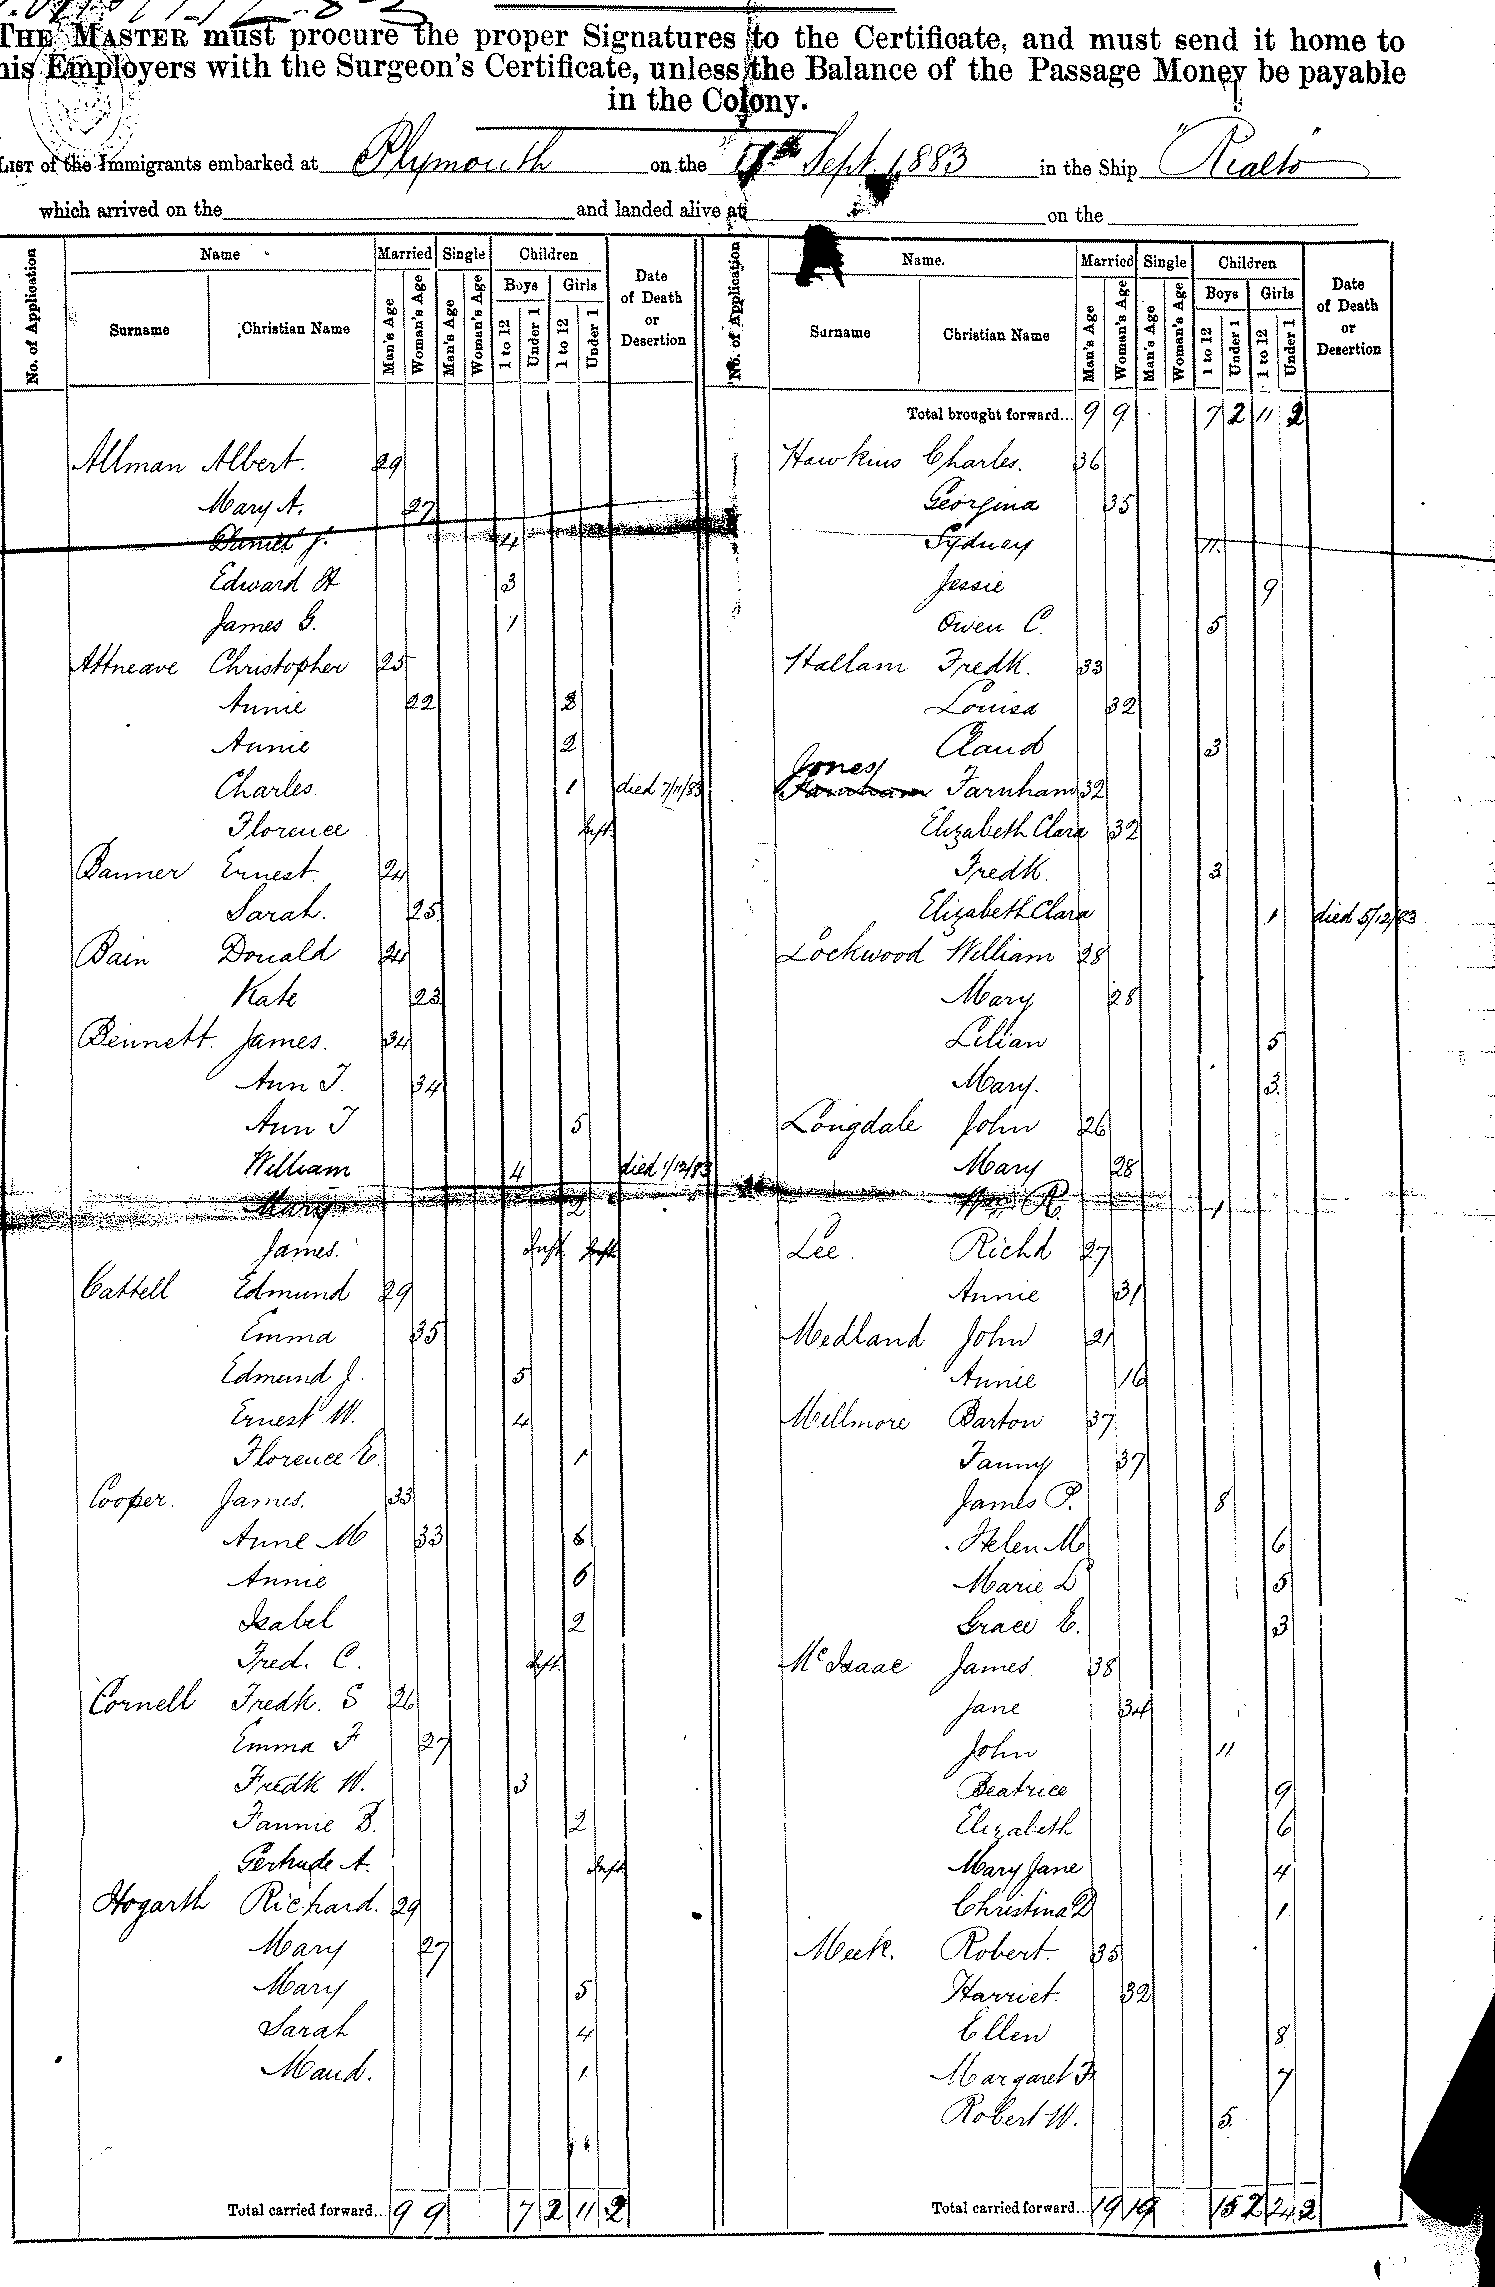 THE MASTER must procure the proper Signatures to the Certificate, and must send it home to
his Employers with the Surgeon's Certificate, unless the Balance of the Passage Money be payable
in the Colony.
LIST of the Immigrants embarked at Plymouth on the Sept. 1883 in the Ship "Rialto"
which arrived on the and landed alive at on the
No. of Application Name Surname Christian Name Married Man's Age Woman's Age Single Man's Age Woman's Age Children Boys 1 to 12 Under 1 Girls 1 to 12 Under 1 Date of Death or Desertion
Allman Albert. 29
Mary A. 27
Daniel J. 4
Edward H 3
James G. 1
Attneave Christopher 25
Annie 22 2
Annie 2
Charles 1 died 7/11/83
Florence Inft
Banner Ernest. 24
Sarah. 25
Bain Donald 24
Kate 23
Bennett. James. 34
Ann T. 34
Ann T 5
William 4 died 1/12/83
Mary 2
James. Inft Inft
Cattell Edmund 29
Emma 35
Edmund J. 5
Ernest W. 4
Florence E. 1
Cooper. James. 33
Anne M 33 6
Annie 6
Isabel 2
Fred. C. Inft
Cornell Fredk. S 26
Emma F 27
Fredk W. 3
Fannie B. 2
Gertrude A. Inft
Hogarth Richard. 29
Mary 27
Mary 5
Sarah 4
Maud. 1
Total carried forward... 9 9 7 2 11 2
No. of Application Name. Surname Christian Name Married Man's Age Woman's Age Single Man's Age Woman's Age Children Boys 1 to 12 Under 1 Girls 1 to 12 Under 1 Date of Death or Desertion
Total brought forward... 9 9 7 2 11 2
Hawkins Charles. 36
Georgina 35
Sydney 11
Jessie 9
Owen C. 5
Hallam Fredk. 33
Louisa 32
Claud 3
Jones
Farnham Farnham 32
Elizabeth Clara 32
Fredk. 3
Elizabeth Clara 1 died 5/12/83
Lockwood William 28
Mary 28
Lilian 5
Mary. 3
Longdale John 26
Mary 28
Wm R. 1
Lee. Richd 27
Annie 31
Medland John 21
Annie 16
Millmore Barton 37
Fanny 37
James P. 8
Helen M. 6
Marie L 5
Grace E. 3
McIsaac James. 38
Jane 34
John 11
Beatrice 9
Elizabeth 6
Mary Jane 4
Christina D 1
Meek. Robert. 35
Harriet. 32
Ellen 8
Margaret F 7
Robert W. 5
Total carried forward... 19 19 15 2 24 2